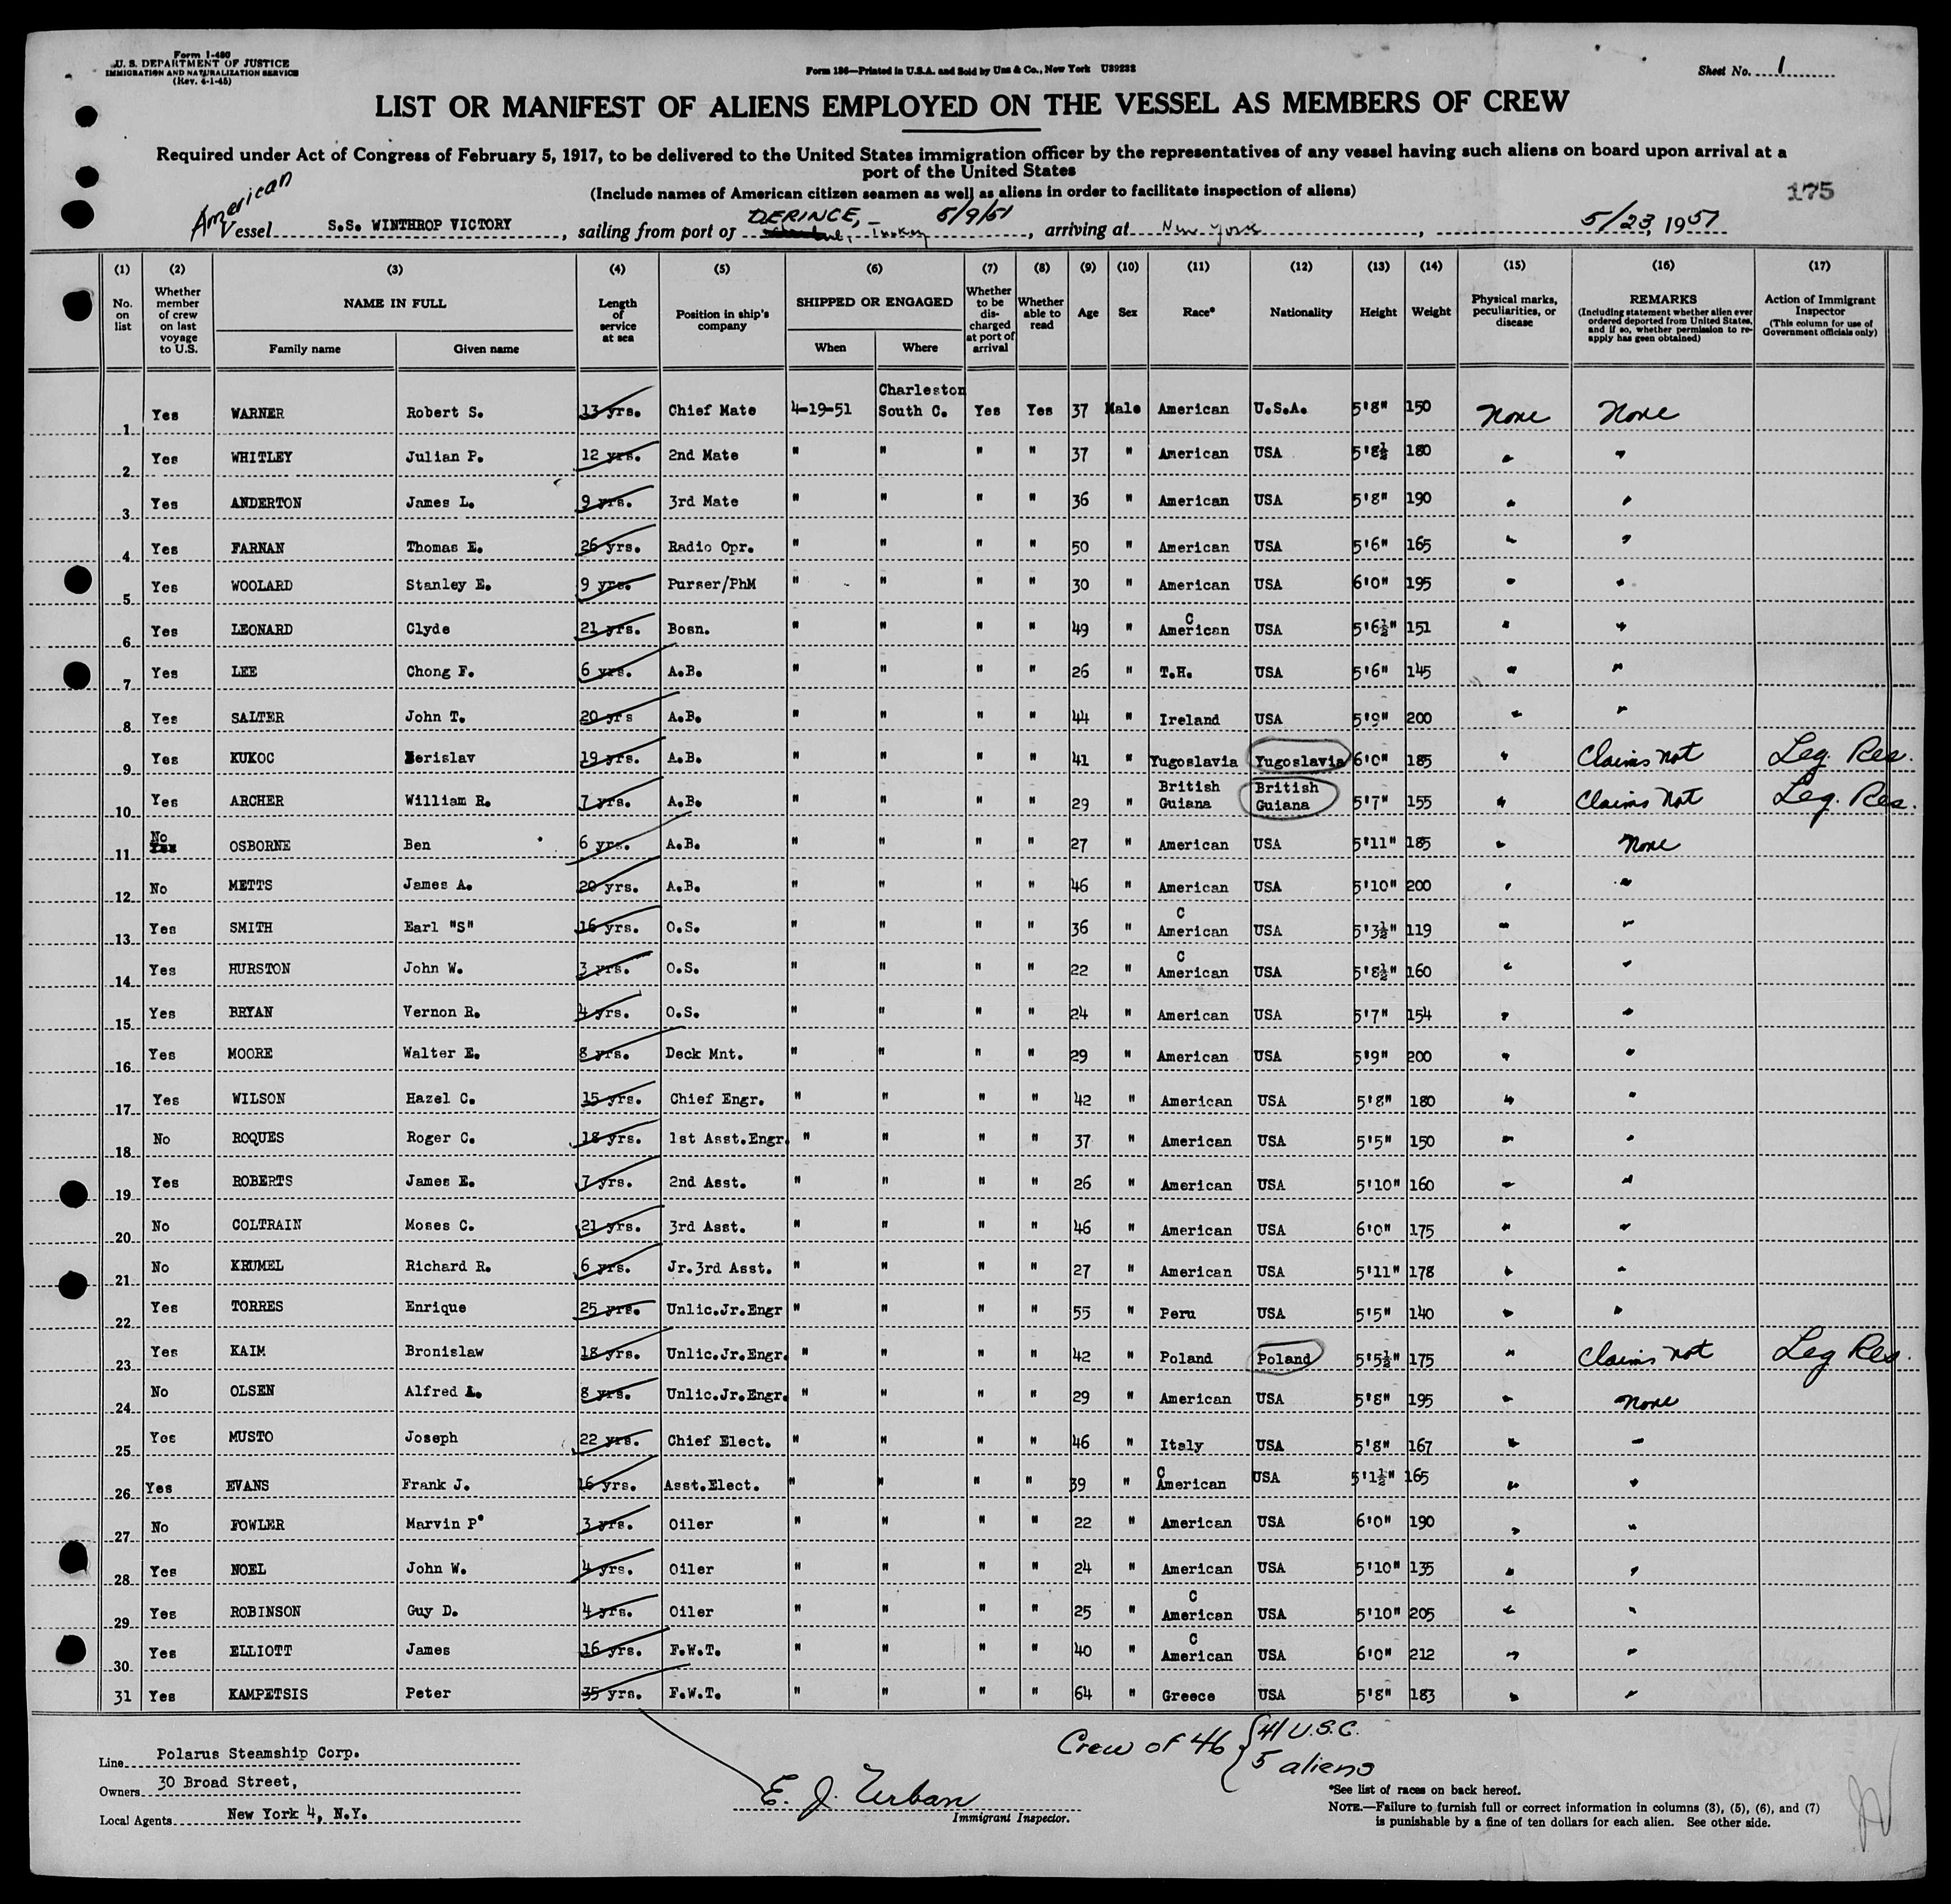 Form I-480
U. S. DEPARTMENT OF JUSTICE
IMMIGRATION AND NATURALIZATION SERVICE
(Rev. 4-1-45)
Form 136—Printed in U.S.A. and Sold by Unz & Co., New York U39232
Sheet No. 1
LIST OR MANIFEST OF ALIENS EMPLOYED ON THE VESSEL AS MEMBERS OF CREW
Required under Act of Congress of February 5, 1917, to be delivered to the United States immigration officer by the representatives of any vessel having such aliens on board upon arrival at a
port of the United States
(Include names of American citizen seamen as well as aliens in order to facilitate inspection of aliens)
175
American
Vessel S.S. WINTHROP VICTORY, sailing from port of DERINCE, Turkey 5/9/51, arriving at New York, 5/23, 1951
(1) (2) (3) (4) (5) (6) (7) (8) (9) (10) (11) (12) (13) (14) (15) (16) (17)
No. on list
Whether member of crew on last voyage to U.S.
NAME IN FULL
Family name Given name
Length of service at sea
Position in ship's company
SHIPPED OR ENGAGED
When Where
Whether to be discharged at port of arrival
Whether able to read
Age
Sex
Race*
Nationality
Height
Weight
Physical marks, peculiarities, or disease
REMARKS
(Including statement whether alien ever ordered deported from United States, and if so, whether permission to re-apply has geen obtained)
Action of Immigrant Inspector
(This column for use of Government officials only)
1 Yes WARNER Robert S. 13 yrs. Chief Mate 4-19-51 Charleston South C. Yes Yes 37 Male American U.S.A. 5'8" 150 None None
2 Yes WHITLEY Julian P. 12 yrs. 2nd Mate " " " " 37 " American USA 5'8½ 180 " "
3 Yes ANDERTON James L. 9 yrs. 3rd Mate " " " " 36 " American USA 5'8" 190 " "
4 Yes FARNAN Thomas E. 26 yrs. Radio Opr. " " " " 50 " American USA 5'6" 165 " "
5 Yes WOOLARD Stanley E. 9 yrs. Purser/PhM " " " " 30 " American USA 6'0" 195 " "
6 Yes LEONARD Clyde 21 yrs. Bosn. " " " " 49 " C American USA 5'6½" 151 " "
7 Yes LEE Chong F. 6 yrs. A.B. " " " " 26 " T.H. USA 5'6" 145 " "
8 Yes SALTER John T. 20 yrs A.B. " " " " 44 " Ireland USA 5'9" 200 " "
9 Yes KUKOC Berislav 19 yrs. A.B. " " " " 41 " Yugoslavia Yugoslavia 6'0" 185 " Claims not Leg. Res.
10 Yes ARCHER William R. 7 yrs. A.B. " " " " 29 " British Guiana British Guiana 5'7" 155 " Claims not Leg. Res.
11 No Yes OSBORNE Ben 6 yrs. A.B. " " " " 27 " American USA 5'11" 185 " None
12 No METTS James A. 20 yrs. A.B. " " " " 46 " American USA 5'10" 200 " "
13 Yes SMITH Earl "S" 16 yrs. O.S. " " " " 36 " C American USA 5'3½" 119 " "
14 Yes HURSTON John W. 3 yrs. O.S. " " " " 22 " C American USA 5'8½" 160 " "
15 Yes BRYAN Vernon R. 4 yrs. O.S. " " " " 24 " American USA 5'7" 154 " "
16 Yes MOORE Walter E. 8 yrs. Deck Mnt. " " " " 29 " American USA 5'9" 200 " "
17 Yes WILSON Hazel C. 15 yrs. Chief Engr. " " " " 42 " American USA 5'8" 180 " "
18 No ROQUES Roger C. 18 yrs. 1st Asst.Engr. " " " " 37 " American USA 5'5" 150 " "
19 Yes ROBERTS James E. 7 yrs. 2nd Asst. " " " " 26 " American USA 5'10" 160 " "
20 No COLTRAIN Moses C. 21 yrs. 3rd Asst. " " " " 46 " American USA 6'0" 175 " "
21 No KRUMEL Richard R. 6 yrs. Jr.3rd Asst. " " " " 27 " American USA 5'11" 178 " "
22 Yes TORRES Enrique 25 yrs. Unlic.Jr.Engr " " " " 55 " Peru USA 5'5" 140 " "
23 Yes KAIM Bronislaw 18 yrs. Unlic.Jr.Engr. " " " " 42 " Poland Poland 5'5½" 175 " Claims not Leg Res.
24 No OLSEN Alfred L. 8 yrs. Unlic.Jr.Engr. " " " " 29 " American USA 5'8" 195 " None
25 Yes MUSTO Joseph 22 yrs. Chief Elect. " " " " 46 " Italy USA 5'8" 167 " "
26 Yes EVANS Frank J. 16 yrs. Asst.Elect. " " " " 39 " C American USA 5'1½" 165 " "
27 No FOWLER Marvin P. 3 yrs. Oiler " " " " 22 " American USA 6'0" 190 " "
28 Yes NOEL John W. 4 yrs. Oiler " " " " 24 " American USA 5'10" 135 " "
29 Yes ROBINSON Guy D. 4 yrs. Oiler " " " " 25 " C American USA 5'10" 205 " "
30 Yes ELLIOTT James 16 yrs. F.W.T. " " " " 40 " C American USA 6'0" 212 " "
31 Yes KAMPETSIS Peter 35 yrs. F.W.T. " " " " 64 " Greece USA 5'8" 183 " "
Crew of 46 { 41 U.S.C.
5 aliens
Line Polarus Steamship Corp.
Owners 30 Broad Street,
Local Agents New York 4, N.Y.
E. J. Urban
Immigrant Inspector.
*See list of races on back hereof.
NOTE.—Failure to furnish full or correct information in columns (3), (5), (6), and (7)
is punishable by a fine of ten dollars for each alien. See other side.